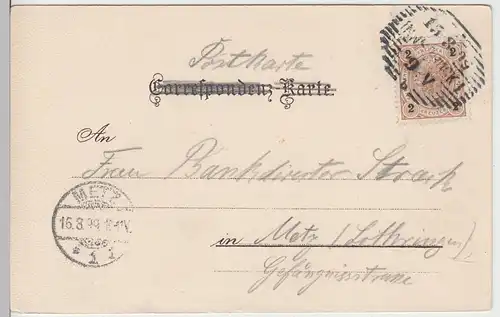 Postkarte
Correspondenz-Karte.
An
Frau Bankdirector Strack
in Metz (Lothringen)
Gefängnisstrasse
METZ
16.8.99
* 1 1
2 2